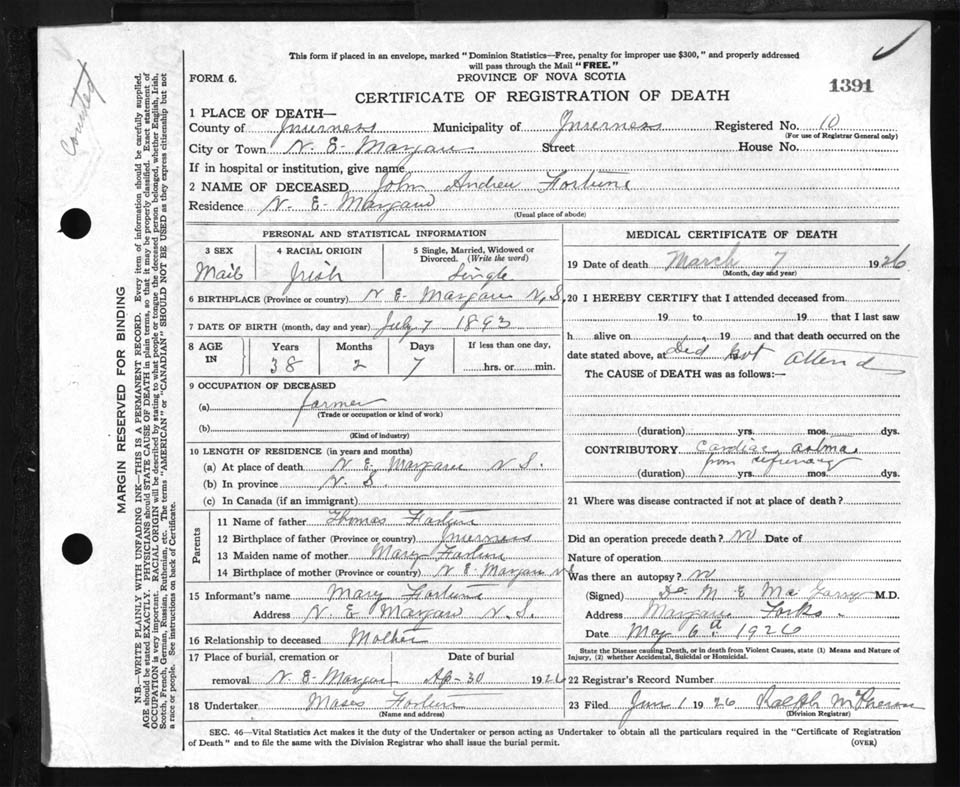 This form if placed in an envelope, marked "Dominion Statistics—Free, penalty for improper use $300," and properly addressed
will pass through the Mail "FREE."
FORM 6.
PROVINCE OF NOVA SCOTIA
1391
CERTIFICATE OF REGISTRATION OF DEATH
counted
MARGIN RESERVED FOR BINDING
N.B.—WRITE PLAINLY WITH UNFADING INK—THIS IS A PERMANENT RECORD. Every item of information should be carefully supplied.
AGE should be stated EXACTLY. PHYSICIANS should STATE CAUSE OF DEATH in plain terms, so that it may be properly classified. Exact statement of
OCCUPATION is very important. RACIAL ORIGIN will be described by stating to what people or tongue the deceased person belonged, whether English, Irish,
Scotch, French, German, Russian, Ruthenian, etc. The terms "AMERICAN" or "CANADIAN" SHOULD NOT BE USED as they express citizenship but not
a race or people. See instructions on back of Certificate.
1 PLACE OF DEATH—
County of Inverness Municipality of Inverness Registered No. 10
(For use of Registrar General only)
City or Town N. E- Margaree Street House No.
If in hospital or institution, give name
2 NAME OF DECEASED John Andrew Fortune
Residence N. E- Margaree
(Usual place of abode)
PERSONAL AND STATISTICAL INFORMATION
3 SEX
Male
4 RACIAL ORIGIN
Irish
5 Single, Married, Widowed or
Divorced. (Write the word)
Single
6 BIRTHPLACE (Province or country) N E- Margaree N.S.
7 DATE OF BIRTH (month, day and year) July 7 1893
8 AGE IN
Years Months Days If less than one day,
38 2 7 hrs. or min.
9 OCCUPATION OF DECEASED
(a) farmer
(Trade or occupation or kind of work)
(b)
(Kind of industry)
10 LENGTH OF RESIDENCE (in years and months)
(a) At place of death N. E. Margaree N S.
(b) In province N. S
(c) In Canada (if an immigrant)
Parents
11 Name of father Thomas Fortune
12 Birthplace of father (Province or country) Inverness
13 Maiden name of mother Mary Fortune
14 Birthplace of mother (Province or country) N E- Margaree
15 Informant's name Mary Fortune
Address N. E Margaree N. S.
16 Relationship to deceased Mother
17 Place of burial, cremation or Date of burial
removal N. E- Margaree Ap- 30 1926
18 Undertaker Moses Fortune
(Name and address)
MEDICAL CERTIFICATE OF DEATH
19 Date of death March 7 1926
(Month, day and year)
20 I HEREBY CERTIFY that I attended deceased from
19 to 19 that I last saw
h alive on , 19 and that death occurred on the
date stated above, at Did not attend
The CAUSE of DEATH was as follows:—
(duration) yrs. mos. dys.
CONTRIBUTORY Cardiac
from
(duration) yrs. mos. dys.
21 Where was disease contracted if not at place of death?
Did an operation precede death? No Date of
Nature of operation
Was there an autopsy? No
(Signed) Dr M E Mac Garry M.D.
Address Margaree Forks
Date May 6 1926
State the Disease causing Death, or in death from Violent Causes, state (1) Means and Nature of
Injury, (2) whether Accidental, Suicidal or Homicidal.
22 Registrar's Record Number
23 Filed June 1 1926 Ralph McPherson
(Division Registrar)
SEC. 46—Vital Statistics Act makes it the duty of the Undertaker or person acting as Undertaker to obtain all the particulars required in the "Certificate of Registration
of Death" and to file the same with the Division Registrar who shall issue the burial permit.
(OVER)